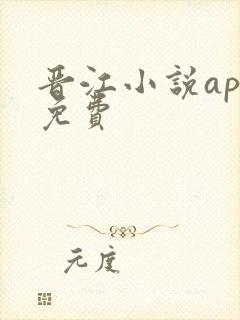 晋江小說ap
免費
元度